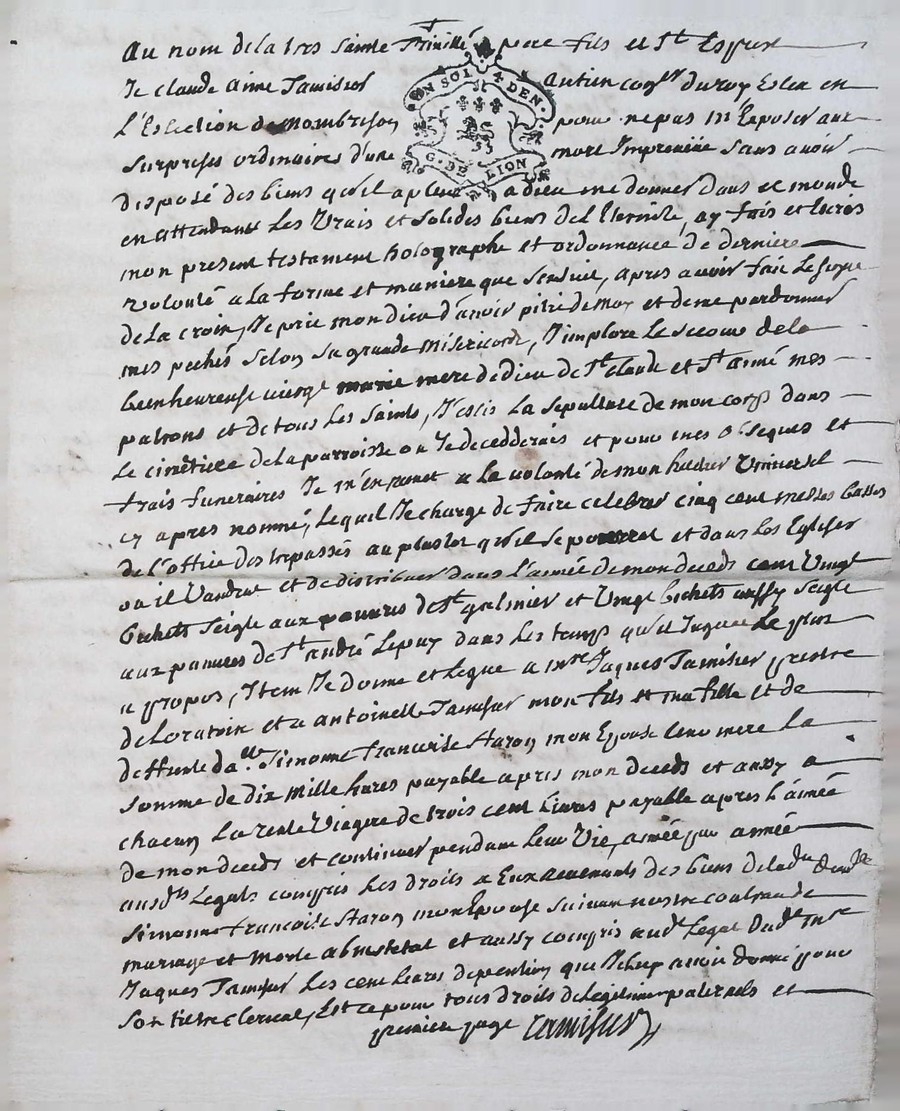 Au nom de la tres Sainte Trinité, pere fils et St Esprit
Je claude aimé Tamisier antien conser du roy Esleu en
L'Eslection de Mombrison pour ne pas m'Exposer aux
EN SOL 4 DEN
G. DE LION
surprises ordinaires d'une mort Impreveüe sans avoir
disposé des biens qu'il a pleu a dieu me donner dans ce monde
en attendant Les Vrais et solides biens de L'Eternité, ay fais et
mon present testament holographe et ordonnance de derniere
volonté a la forme et maniere que sensuit, apres avoir fait Le signe
de La croix, Je prie mon dieu d'avoir pitié de Moy et de me pardonner
mes pechés selon sa grande Misericorde, J'implore Le secour de la
bienheureuse vierge marie mere de dieu de St Claude et St aimé mes
patrons et de tous Les saints, J'eslis La sepulture de mon corps dans
Le cimetiere de La parroisse ou Je decedderais et pour mes obseques et
frais funeraires Je m'en remet a La volonté de mon heritier Universel
cy apres nommé, Lequel Je charge de faire celebrer cinq cent messes basses
de L'office des trepassés au plustot qu'il se pourra et dans Les Eglises
ou il Vaudra et de distribuer dans L'année de mon deceds cent Vingt
bichets seigle aux pauvres de St galmier et Vingt bichets aussy seigle
aux pauvres de St andré Le puy dans Les temps qu'il Jugera Le plus
a propos, Item Je donne et Legue a mre Jaques Tamisier prestre
de Loratoire et a antoinette Tamisier mon fils et ma fille et de
deffunte dalle Simonne francoise Staron mon Epouse Leur mere La
somme de dix Mille Livres payable apres mon deceds et aussy a
chacun La rente Viagere de trois cent Livres payable apres L'année
de mon deceds et continuer pendant Leur Vie, année par année
ausds Legats compris Les droits a Eux advenants des biens de lade dalle
Simonne francoise Staron mon Epouse suivant nostre contrat de
mariage et morte abintestat et aussy compris aud Legat dud mre
Jaques Tamisier Les cent Livres de pention que Je Luy avoir donné pour
son titre clerical, Est ce pour tous droits de Legitime paternels et
premiere page Tamisier